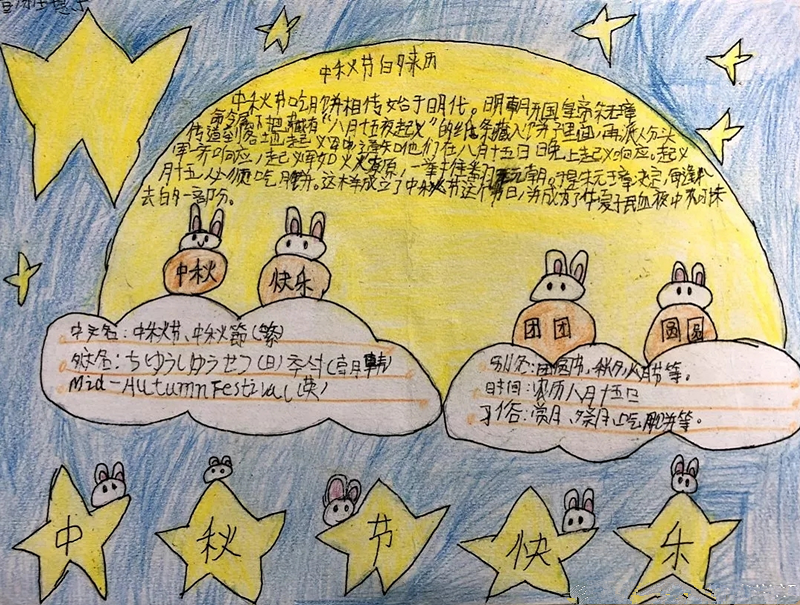 中秋节的来历
中秋节吃月饼相传始于明代。明朝开国皇帝朱元璋
命令属下把藏有“八月十五夜起义”的纸条藏入饼子里面,再派人分头
传送到各地起义军中,通知他们在八月十五日晚上起义响应。起义
军齐响应,起义军如火燎原,一举推翻元朝。于是朱元璋决定,每逢八
月十五,人必须吃月饼。这样成立了中秋节这个节日,并成为了华夏子民血液中不可抹
去的一部份。
中秋
快乐
团团
圆圆
中文名:中秋节、中秋節(繁)
外文名:ちゅうしゅうせつ(日)추석(韩)
Mid-Autumn Festival(英)
别名:团圆节、秋夕、八月节等。
时间:农历八月十五日
习俗:赏月、祭月、吃月饼等。
中 秋 节 快 乐